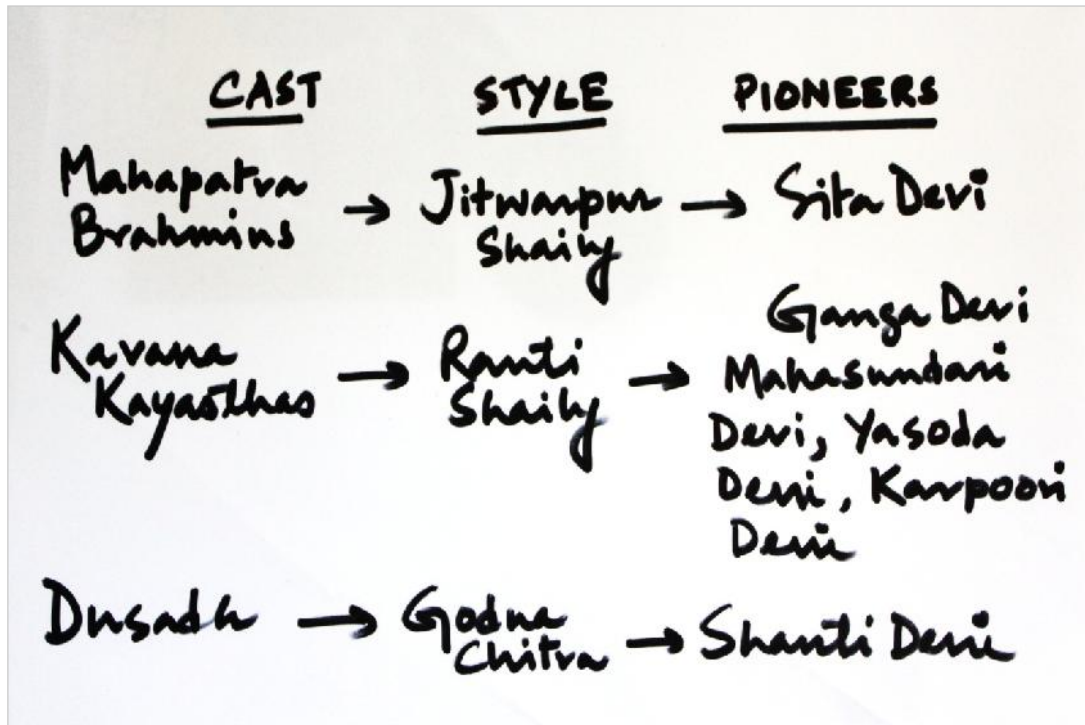 CAST STYLE PIONEERS
Mahapatra Brahmins → Jitwarpur Shaily → Sita Devi
Kavana Kayasthas → Ranti Shaily → Ganga Devi
Mahasundari
Devi, Yasoda
Devi, Karpoori
Devi
Dusadh → Godna Chitra → Shanti Devi